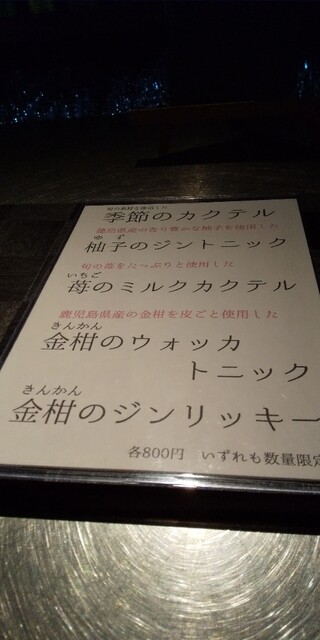 旬の素材を使用した
季節のカクテル
徳島県産の香り豊かな柚子を使用した
ゆず
柚子のジントニック
旬の苺をたっぷりと使用した
いちご
苺のミルクカクテル
鹿児島県産の金柑を皮ごと使用した
きんかん
金柑のウォッカ
トニック
きんかん
金柑のジンリッキー
各800円 いずれも数量限定